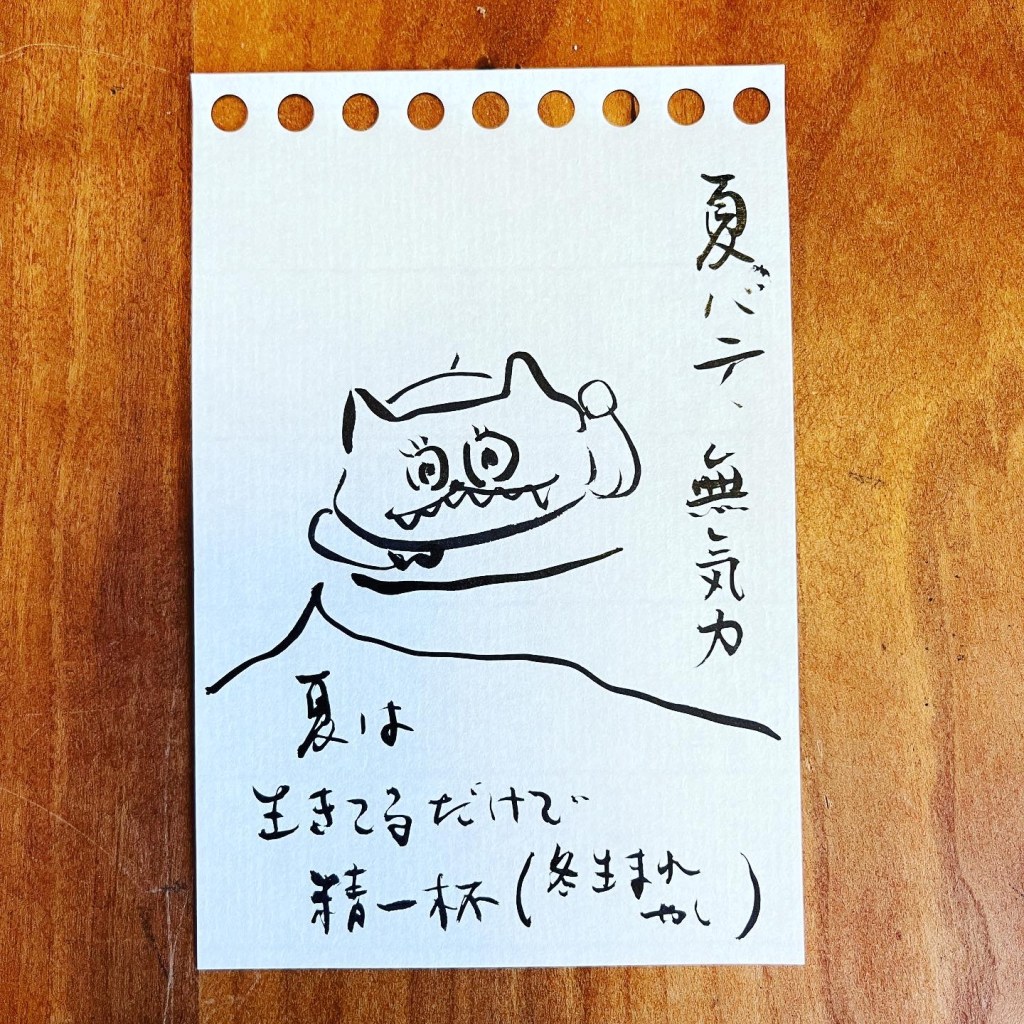 夏バテ、無気力
夏は
生きてるだけで
精一杯(冬生まれ
やし)